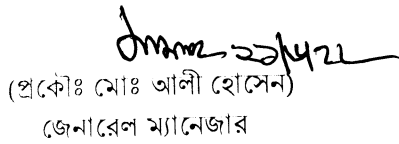 (প্রকৌঃ মোঃ আলী হোসেন)
জেনারেল ম্যানেজার